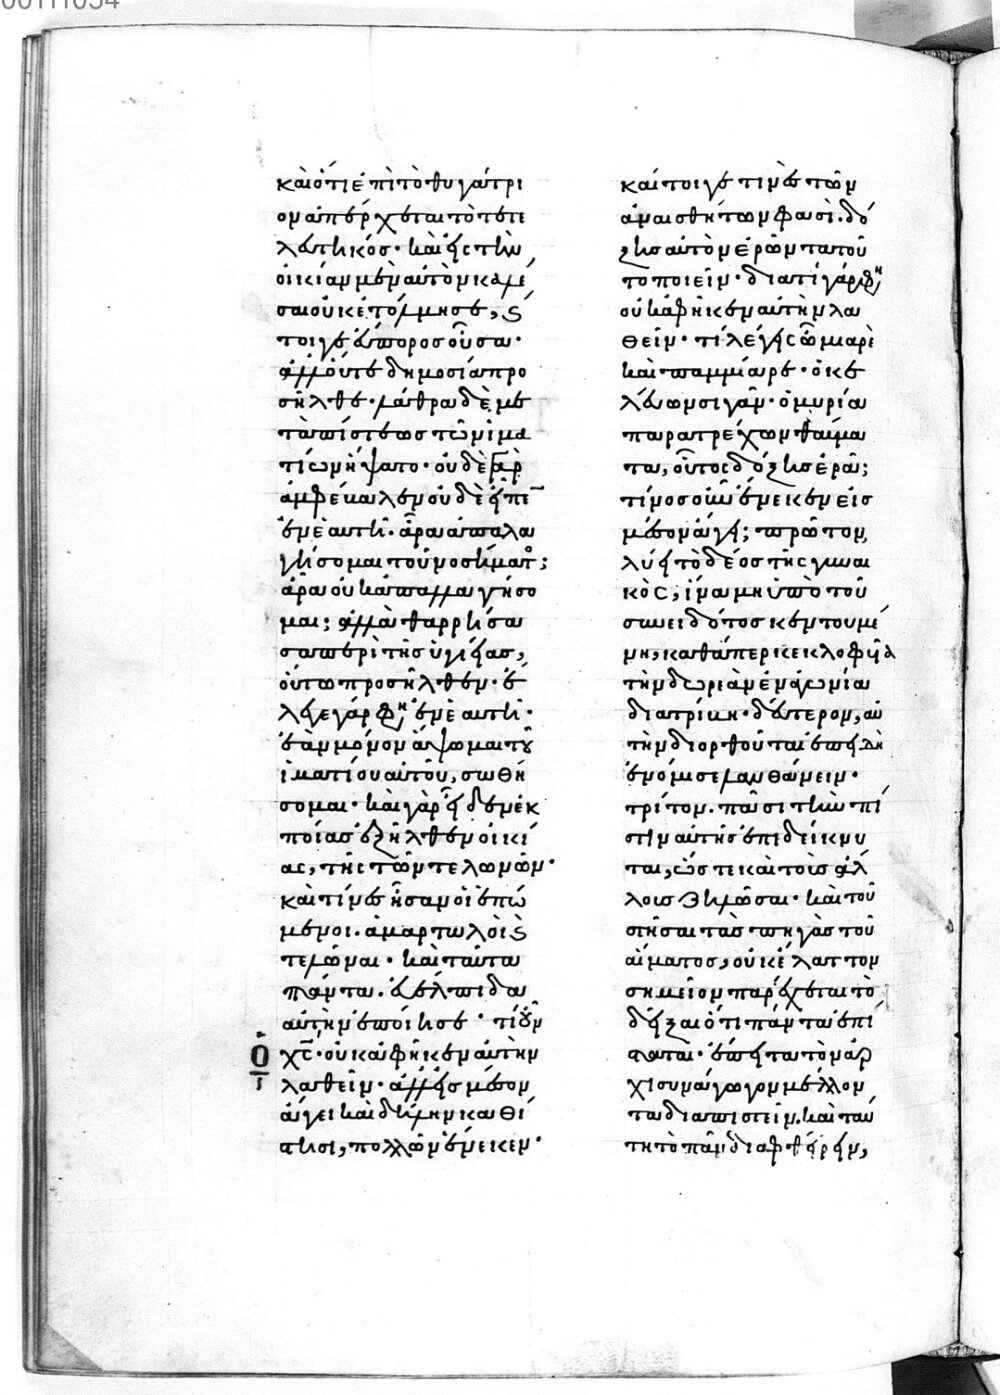 καὶ ὅτι ἐπὶ τὸ θυγάτρι
ον ἀπέρχεται τὸ τετε
λευτηκός· καὶ εἰς τὴν
οἰκίαν μὲν αὐτὸν καλέ
σαι οὐκ ἐτόλμησε, καί
τοιγε εὔπορος οὖσα·
ἀλλ' οὔτε δημοσία προ
σῆλθε· λάθρα δὲ με
τὰ πίστεως τῶν ἱμα
τίων ἥψατο· οὐδὲ γὰρ
ἀμφέβαλεν οὐδὲ εἶπεν
ἐν ἑαυτῆ· ἆρα ἀπαλα
γήσομαι τοῦ νοσήματος;
ἆρα οὐκ ἀπαλλαγήσο
μαι; ἀλλὰ θαρρήσα
σα περὶ τῆς ὑγιείας,
οὕτω προσῆλθεν· ἔ
λεγε γάρ φησιν ἐν ἑαυτῆ·
ἐὰν μόνον ἅψωμαι τοῦ
ἱματίου αὐτοῦ, σωθή
σομαι· καὶ γὰρ εἶδεν ἐκ
ποίας ἐξῆλθεν οἰκί
ας, τῆς τῶν τελωνῶν·
καὶ τίνες ἦσαν οἱ ἑπό
μενοι. ἁμαρτωλοὶ καὶ
τελῶναι· καὶ ταῦτα
πάντα. εὔελπιδα
αὐτὴν ἐποίησε· τί οὖν
ὁ χς· οὐκ ἀφῆκεν αὐτὴν
λαθεῖν· ἀλλ' εἰς μέσον
ἄγει καὶ δήλην καθί
στησι, πολλῶν ἕνεκεν·
καίτοιγε τινὲς τῶν
ἀναισθήτων φασὶ. δό
ξης αὐτὸν ἐρῶντα τοῦ
το ποιεῖν· διατί γάρ φησιν
οὐκ ἀφῆκεν αὐτὴν λα
θεῖν· τί λέγεις ὦ μιαρὲ
καὶ παμμίαρε· ὁ κε
λεύων σιγᾶν· ὁ μυρία
παρατρέχων θαύμα
τα, οὗτος δόξης ἐρᾶ;
τίνος οὖν ἕνεκεν εἰς
μέσον ἄγει; πρῶτον,
λύει τὸ δέος τῆς γυναι
κός, ἵνα μὴ ὑπὸ τοῦ
συνειδότος κεντουμέ
νη, καθάπερ κεκλοφυῖα
τὴν δωρεὰν ἐν ἀγωνία
διατρίβη· δεύτερον, αὐ
τὴν διορθοῦται ἐπειδὴ
ἐνόμισε λανθάνειν·
τρίτον. πᾶσι τὴν πί
στιν αὐτῆς ἐπιδείκνυ
ται, ὥστε καὶ τοὺς ἄλ
λους ζηλῶσαι· καὶ τοῦ
στῆσαι τὰς πηγὰς τοῦ
αἵματος, οὐκ ἔλαττον
σημεῖον παρέχεται τὸ
δεῖξαι ὅτι πάντα ἐπί
σταται· ἔπειτα τὸν ἀρ
χισυνάγωγον μέλλον
τα διαπιστεῖν, καὶ ταύ
τη τὸ πᾶν διαφθείρειν,